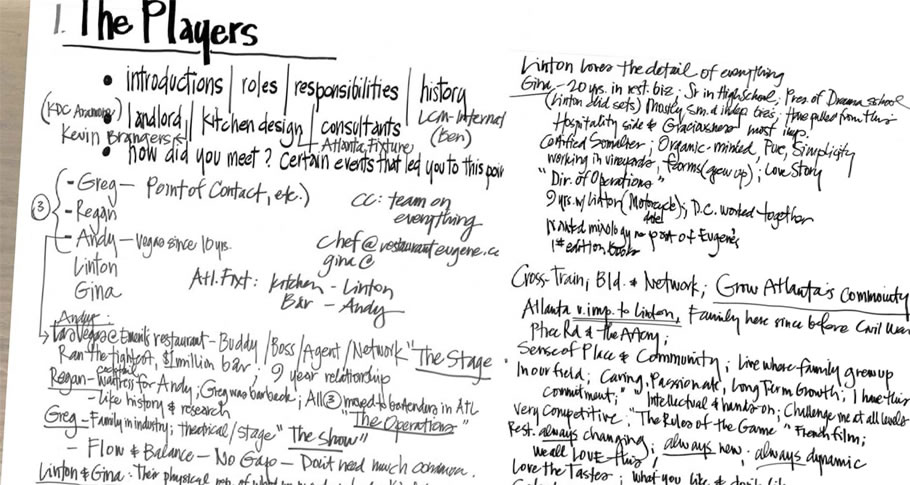 1. The Players
• introductions | roles | responsibilities | history
(KDC • landlord | kitchen design | consultants LCM-Internal
Kevin Atlanta Fixture (Ben)
• how did you meet? Certain events that led you to this poi
③ - Greg — Point of Contact, etc.)
- Regan
- Andy — Vegas since 10 yrs.
Linton
Gina
CC: team on
everything
chef@restauranteugene.c
gina@
Atl. Fixt: kitchen - Linton
Bar - Andy
Andy:
Las Vegas @ restaurant - Buddy/Boss/Agent/Network "The Stage
Ran the tightest, $1 million bar; 9 year relationship
Regan - cocktail waitress for Andy; Greg was barback; All ③ moved to bartenders in ATL
- Like history & research "The Operations"
Greg - Family in industry; theatrical/stage "The Show"
- Flow & Balance — No Gaps — Don't need much
Linton & Gina: Their physical
Linton loves the detail of everything
Gina - 20 yrs. in rest. biz; Sr in High School; Pres. of Drama school
(Linton did sets) Mostly sm. & indep.
Hospitality side & Graciousness most imp.
Certified Sommelier; Organic-minded, Pure, Simplicity
working in vineyards, farms (grew up); Love Story
"Dir. of Operations"
9 yrs. w/ Linton (Motorcycle); D.C. worked together
mixology part of Eugene's
1st edition
Cross-Train, Bld. & Network; Grow Atlanta's Commounity
Atlanta v. imp. to Linton, Family here since before Civil War
Sense of Place & Community; Live where family grew up
In our field; Caring, Passionate, Long Term Growth; I have this
commitment;" Intellectual & hands on; Challenge me at all levels
Very Competitive. "The Rules of the Game" French film;
Rest. always changing; always new. always dynamic
we all LOVE this;
Love the Tastes; what you like &